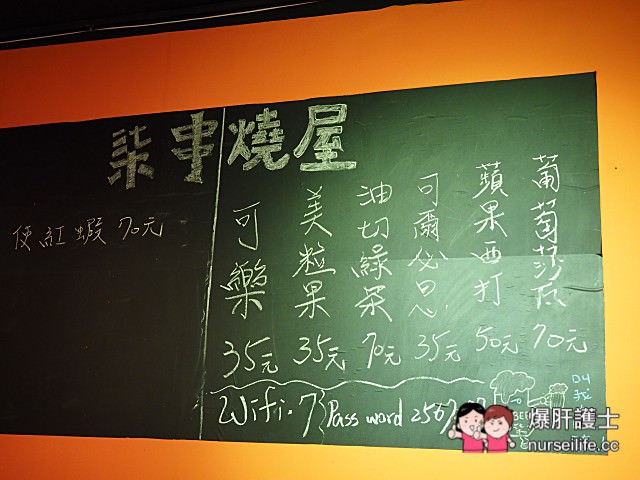 柒串燒屋
使紅蝦 70元
可樂 35元
美粒果 35元
油切綠茶 70元
可爾必思 35元
蘋果西打 50元
葡萄莎瓦 70元
Wifi.7 Pass word 2567
爆肝護士
nurseilife.cc